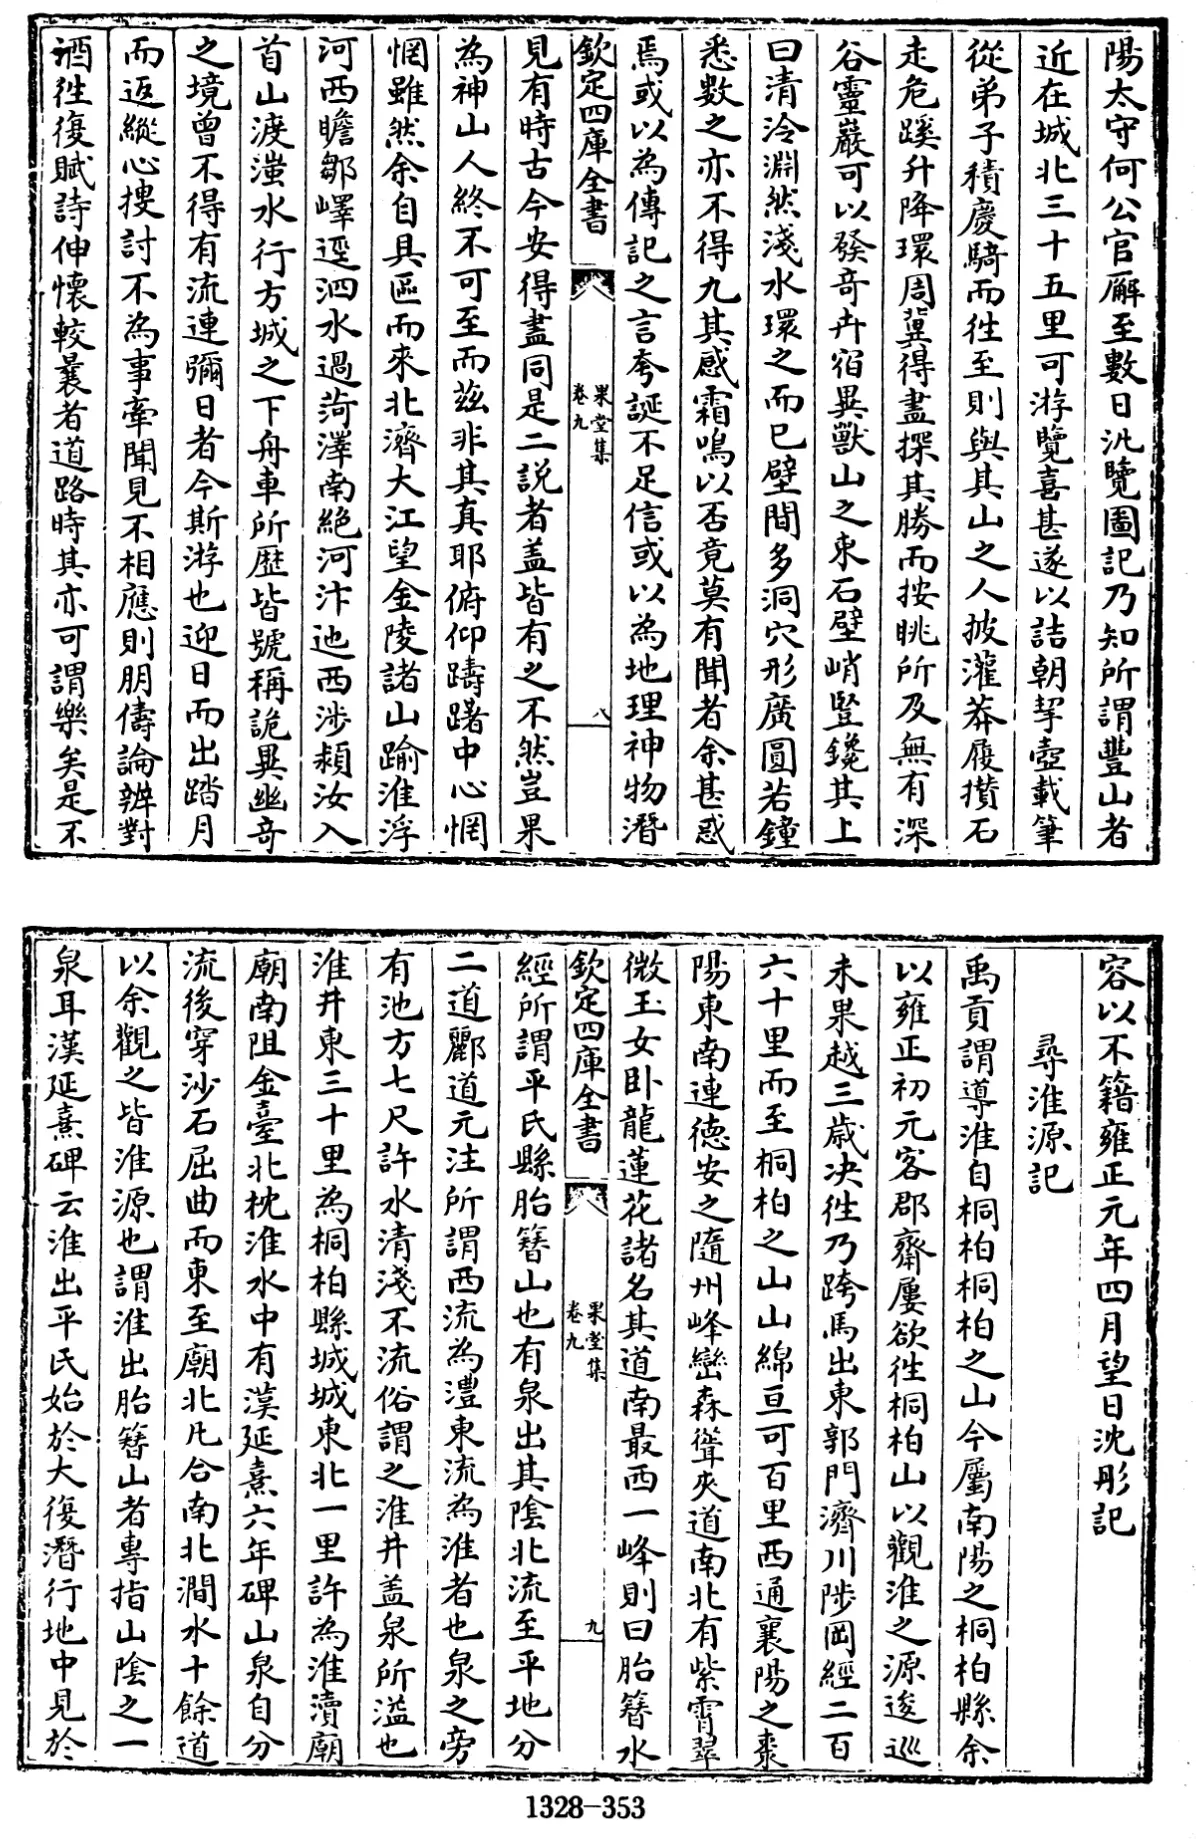 陽太守何公官廨至數日汎覽圖記乃知所謂豐山者
近在城北三十五里可游覽喜甚遂以詰朝挈壺載筆
從弟子積慶騎而徃至則與其山之人披灌莽履攢石
走危蹊升降環周冀得盡探其勝而按眺所及無有深
谷靈巖可以發竒卉宿異獸山之東石壁峭竪鑱其上
曰清泠淵然淺水環之而已壁間多洞穴形廣圓若鐘
悉數之亦不得九其感霜鳴以否竟莫有聞者余甚惑
焉或以為傳記之言夸誕不足信或以為地理神物潛
欽定四庫全書
果堂集
卷九
八
見有時古今安得盡同是二説者盖皆有之不然豈果
為神山人終不可至而兹非其真耶俯仰躊躇中心惘
惘雖然余自具區而來北濟大江望金陵諸山踰淮浮
河西瞻鄒嶧逕泗水過菏澤南絶河汴迆西涉潁汝入
首山渡滍水行方城之下舟車所歴皆號稱詭異幽竒
之境曾不得有流連彌日者今斯游也迎日而出踏月
而返縱心搜討不為事牽聞見不相應則朋儔論辨對
酒徃復賦詩伸懷較曩者道路時其亦可謂樂矣是不
容以不籍雍正元年四月望日沈彤記
尋淮源記
禹貢謂導淮自桐柏桐柏之山今屬南陽之桐柏縣余
以雍正初元客郡齋屢欲徃桐柏山以觀淮之源逡巡
未果越三歲决徃乃跨馬出東郭門濟川陟岡經二百
六十里而至桐柏之山山綿亘可百里西通襄陽之棗
陽東南連德安之隨州峰巒森聳夾道南北有紫霄翠
微玉女卧龍蓮花諸名其道南最西一峰則曰胎簪水
欽定四庫全書
果堂集
卷九
九
經所謂平氏縣胎簪山也有泉出其隂北流至平地分
二道酈道元注所謂西流為澧東流為淮者也泉之旁
有池方七尺許水清淺不流俗謂之淮井盖泉所溢也
淮井東三十里為桐柏縣城城東北一里許為淮瀆廟
廟南阻金臺北枕淮水中有漢延熹六年碑山泉自分
流後穿沙石屈曲而東至廟北凡合南北澗水十餘道
以余觀之皆淮源也謂淮出胎簪山者專指山隂之一
泉耳漢延熹碑云淮出平氏始於大復潛行地中見於
1328-353